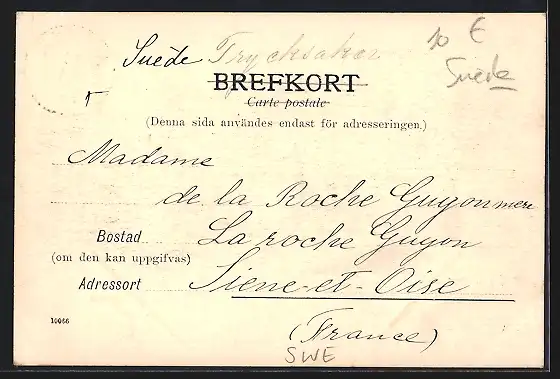 Suède Trycksaker
10 €
Suède
BREFKORT
Carte postale
(Denna sida användes endast för adresseringen.)
Madame
de la Roche Guyon mere
Bostad La roche Guyon
(om den kan uppgifvas)
Adressort Siene-et-Oise
10066
(France)
SWE